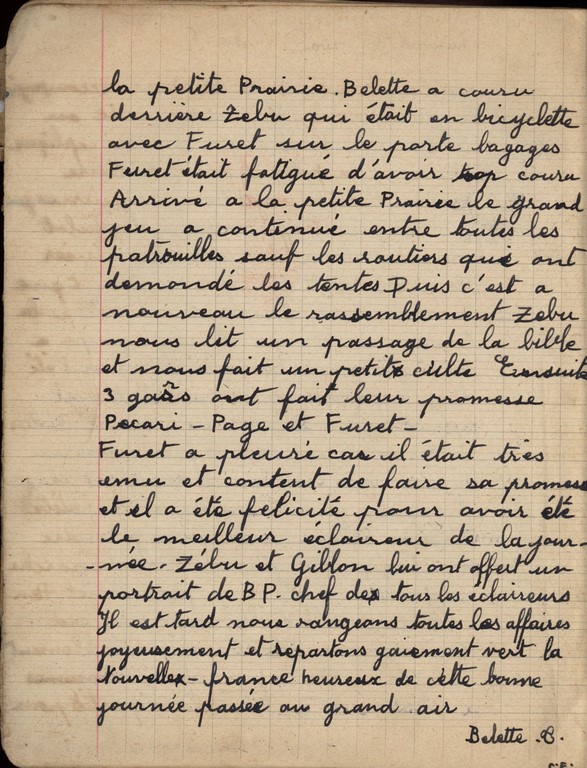 la petite Prairie. Belette a couru
derrière Zebu qui était en bicyclette
avec Furet sur le porte bagages
Furet était fatigué d'avoir trop couru
Arrivé a la petite Prairie le grand
jeu a continué entre toutes les
patrouilles sauf les routiers qui ont
demondé les tentes Puis c'est a
nouveau le rassemblement Zebu
nous lit un passage de la bible
et nous fait un petit culte Ensuite
3 gars ont fait leur promesse
Pecari - Page et Furet -
Furet a pleuré car il était très
emu et content de faire sa promesse
et il a été felicité pour avoir été
le meilleur éclaireur de la jour-
-née. Zébu et Gibbon lui ont offert un
portrait de B P. chef des tous les éclaireurs
Il est tard nous rangeons toutes les affaires
joyeusement et repartons gaiement vert la
Nouvelle - france heureux de cette bonne
journée passée au grand air
Belette .C.